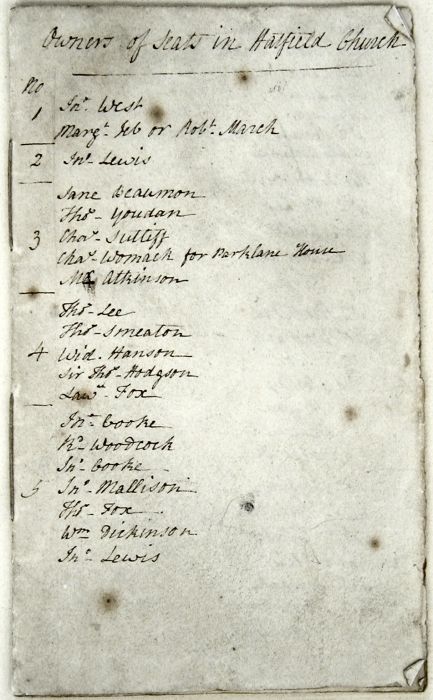 Owners of Seats in Hatfield Church
No
1 Jno. West
Margt. Jeb or Robt. March
2 Jno. Lewis
Jane Beaumon
Thos. Youdan
3 Chas. Sutliff
Chas. Womack for Parklane House
Atkinson
Thos. Lee
Thos. Smeaton
4 Wid. Hanson
Sir Thos. Hodgson
Lawr. Fox
Jno. Cooke
Rd. Woodcock
Jno. Cooke
5 Jno. Mallison
Thos. Fox
Wm Dickinson
Jno. Lewis